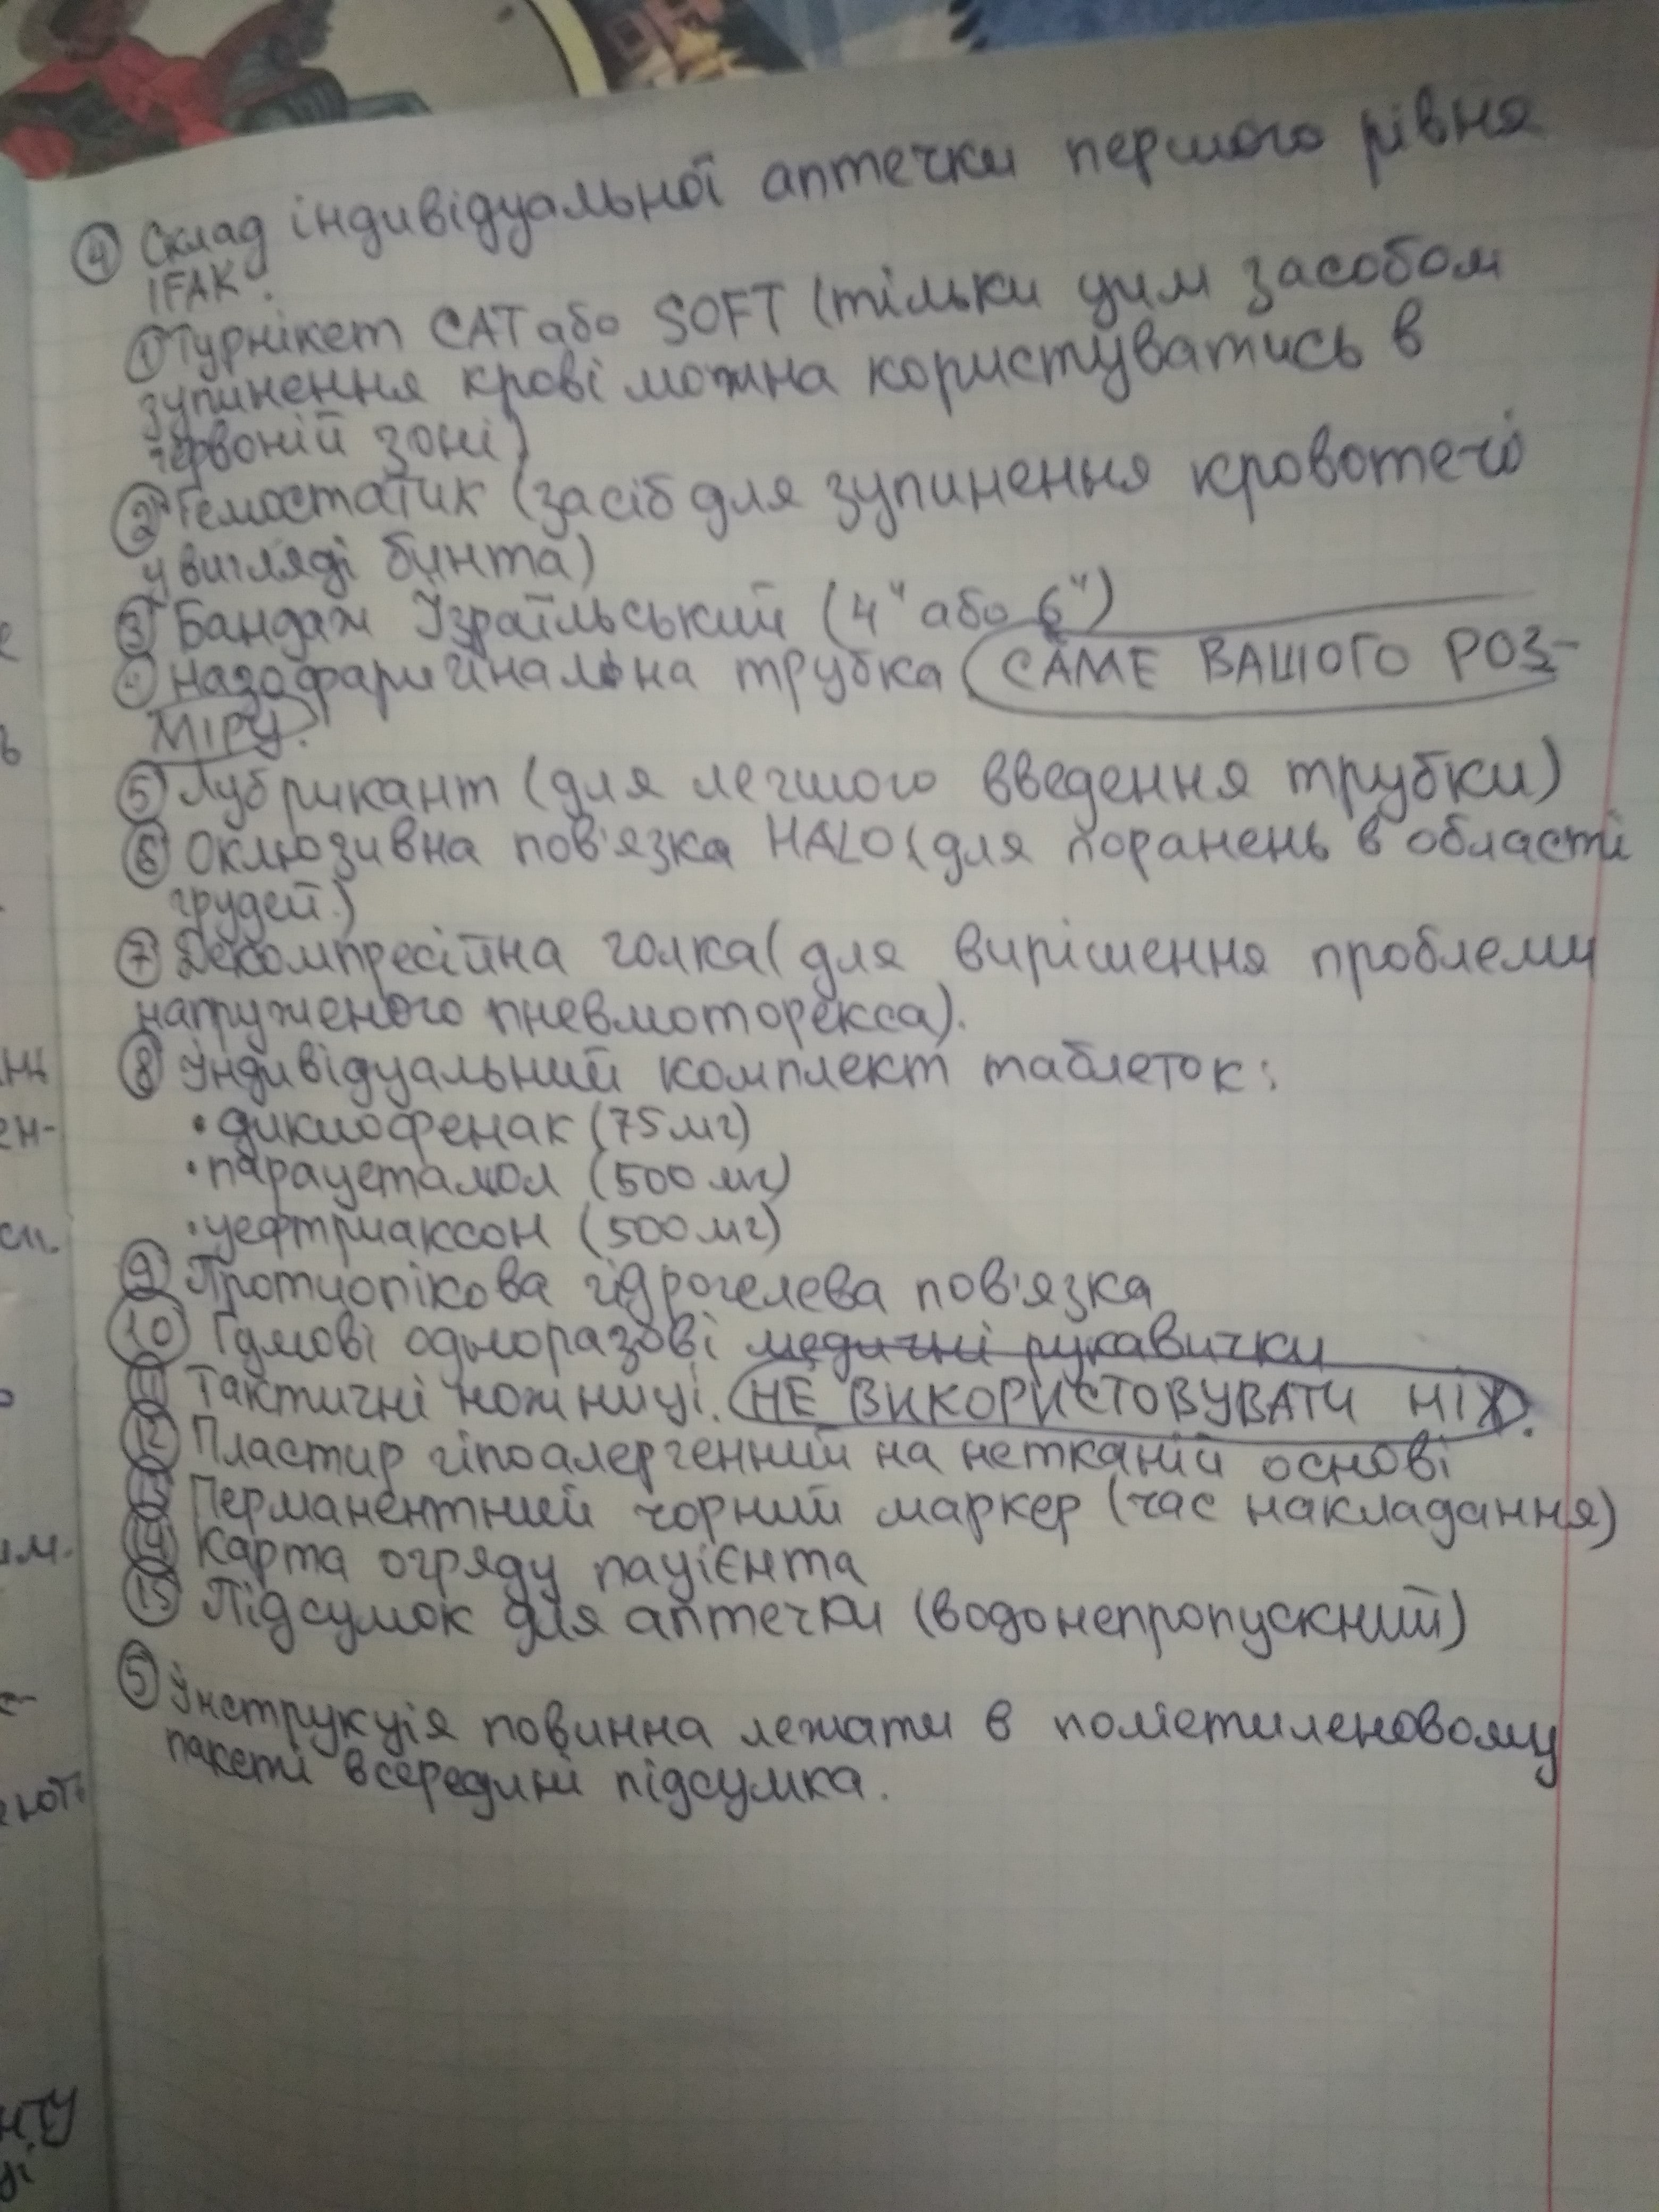 ④ Склад індивідуальної аптечки першого рівня
IFAK:
① Турнікет CAT або SOFT (тільки цим засобом
зупинення крові можна користуватись в
червоній зоні)
② Гемостатик (засіб для зупинення кровотечі
у вигляді бинта)
③ Бандаж Ізраїльський (4" або 6")
④ назофарингінальна трубка САМЕ ВАШОГО РОЗ-
МІРУ.
⑤ Лубрикант (для легшого введення трубки)
⑥ Оклюзивна пов'язка HALO (для поранень в області
грудей)
⑦ Декомпресійна голка (для вирішення проблеми
напруженого пневмоторекса).
⑧ Індивідуальний комплект таблеток:
• диклофенак (75 мг)
• парацетамол (500 мг)
• цефтриаксон (500 мг)
⑨ Протиопікова гідрогелева пов'язка
⑩ Гумові одноразові медичні рукавички
⑪ Тактичні ножниці. НЕ ВИКОРИСТОВУВАТИ НІЖ.
⑫ Пластир гіпоалергенний на нетканій основі
⑬ Перманентний чорний маркер (час накладання)
⑭ Карта огряду пацієнта
⑮ Підсумок для аптечки (водонепропускний)
⑤ Інструкція повинна лежати в поліетиленовому
пакеті всередині підсумка.